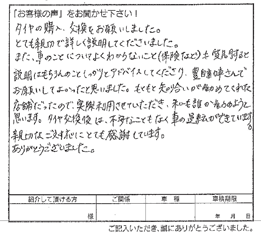 「お客様の声」をお聞かせ下さい！
タイヤの購入、交換をお願いしました。
とても親切で詳しく説明してくださいました。
また、車のことについてよくわからないこと(保険など)も質問すると
説明はもちろんのことしっかりとアドバイスしてくださり、豊田さんで
お願いしてよかったと思いました。もともと知り合いが勧めてくれた
店舗だったので、実際利用させていただき、私も誰かに勧めようと
思います。タイヤ交換後は、不安なこともなく車の運転ができています。
親切なご対応にとても感謝しています。
ありがとうございました。
紹介して頂ける方 ご関係 車種 車検期限
様 年 月 日
ご記入いただき、誠にありがとうございました。